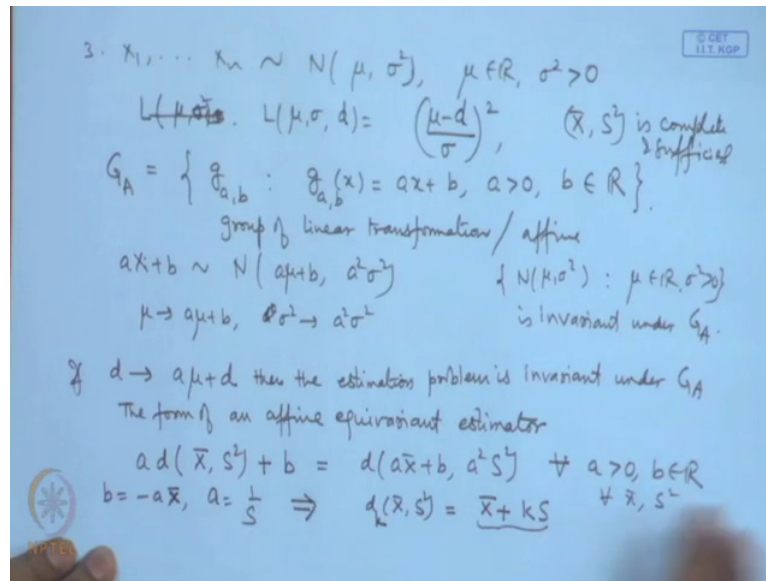 © CET
I.I.T. KGP
3. X₁, ... Xₙ ~ N( μ, σ²), μ ∈ ℝ, σ² > 0
L(μ, σ, d) = ((μ-d)/σ)², (X̄, S²) is complete
& sufficient
G_A = { g_{a,b} : g_{a,b}(x) = ax + b, a>0, b ∈ ℝ }.
group of linear transformation / affine
aXi+b ~ N( aμ+b, a²σ²) { N(μ,σ²) : μ ∈ ℝ, σ²>0}
μ → aμ+b, σ² → a²σ² is invariant under G_A.
If d → aμ+d then the estimation problem is invariant under G_A
The form of an affine equivariant estimator
a d( X̄, S²) + b = d(aX̄+b, a²S²) ∀ a>0, b∈ℝ
b = -aX̄, a = 1/S ⇒ d_k(X̄, S²) = X̄ + kS ∀ X̄, S²
NPTEL